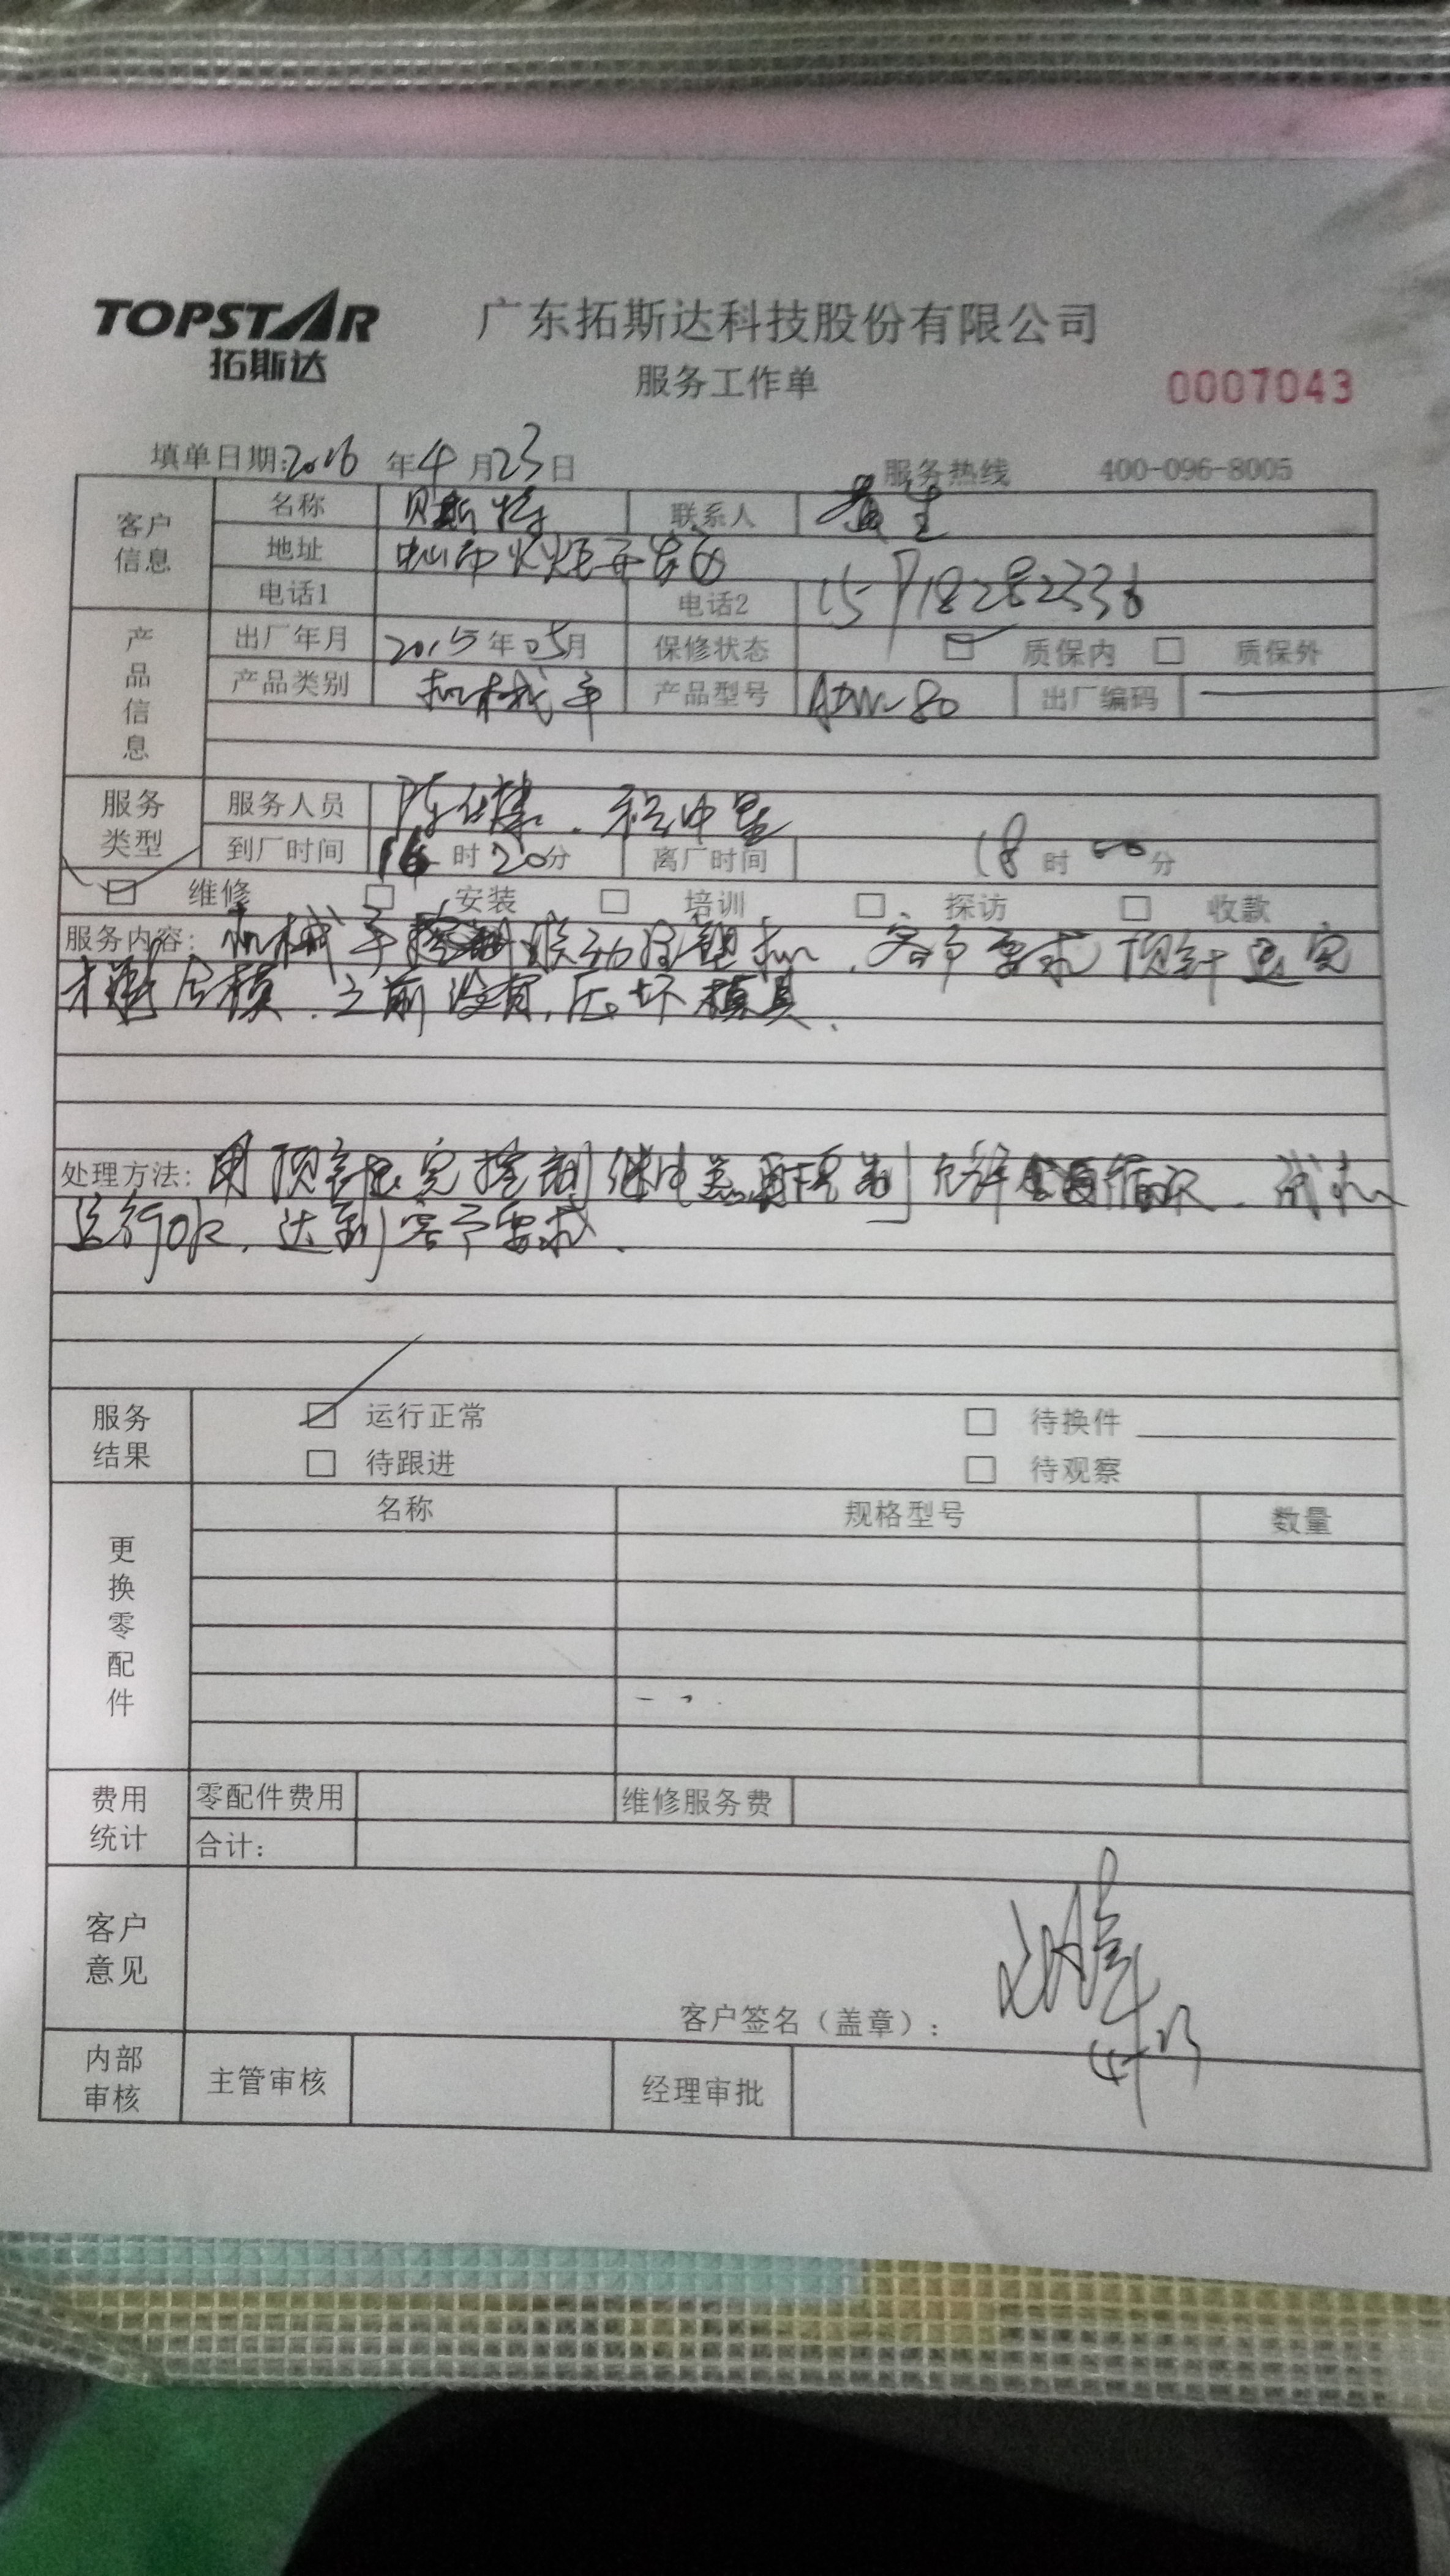 TOPSTAR
拓斯达
广东拓斯达科技股份有限公司
服务工作单
0007043
填单日期:2016年4月23日
服务热线 400-096-8005
客户信息
名称 贝斯特 联系人 黄生
地址 中山市火炬开发区
电话1 电话2 15918282336
产品信息
出厂年月 2015年05月 保修状态 质保内 质保外
产品类别 机械手 产品型号 出厂编码
服务类型
服务人员 陈仕
到厂时间 16时20分 离厂时间 18时00分
维修 安装 培训 探访 收款
服务内容: 机械手控制联动注塑机.客户要求顶针退完
才能合模.之前没有,压坏模具.
处理方法: 用顶针退完控制继电器再控制允许合模信号.试机
运行OK,达到客户要求.
服务结果
运行正常 待换件
待跟进 待观察
更换零配件
名称 规格型号 数量
费用统计
零配件费用 维修服务费
合计:
客户意见
客户签名(盖章):
内部审核
主管审核 经理审批